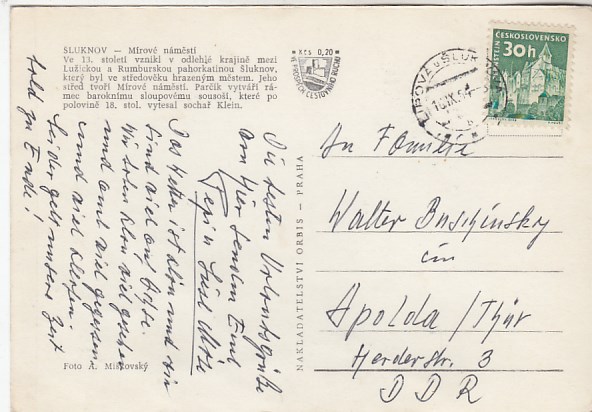 ŠLUKNOV — Mírové náměstí
Ve 13. století vznikl v odlehlé krajině mezi
Lužickou a Rumburskou pahorkatinou Šluknov,
který byl ve středověku hrazeným městem. Jeho
střed tvoří Mírové náměstí. Parčík vytváří rá-
mec baroknímu sloupovému sousoší, které po
polovině 18. stol. vytesal sochař Klein.
Kčs 0,20
ČESKOSLOVENSKO
30h
An Familie
Walter
in
Apolda / Thür
Herderstr. 3
D D R
NAKLADATELSTVÍ ORBIS — PRAHA
Die besten Urlaubsgrüße
von hier senden Euch
Das Wetter ist schön und wir
sind viel auf Achse.
Wir haben schon viel gesehen
und auch viel gegessen
und viel
Leider geht unsere Zeit
bald zu Ende!
Foto A. Miškovský